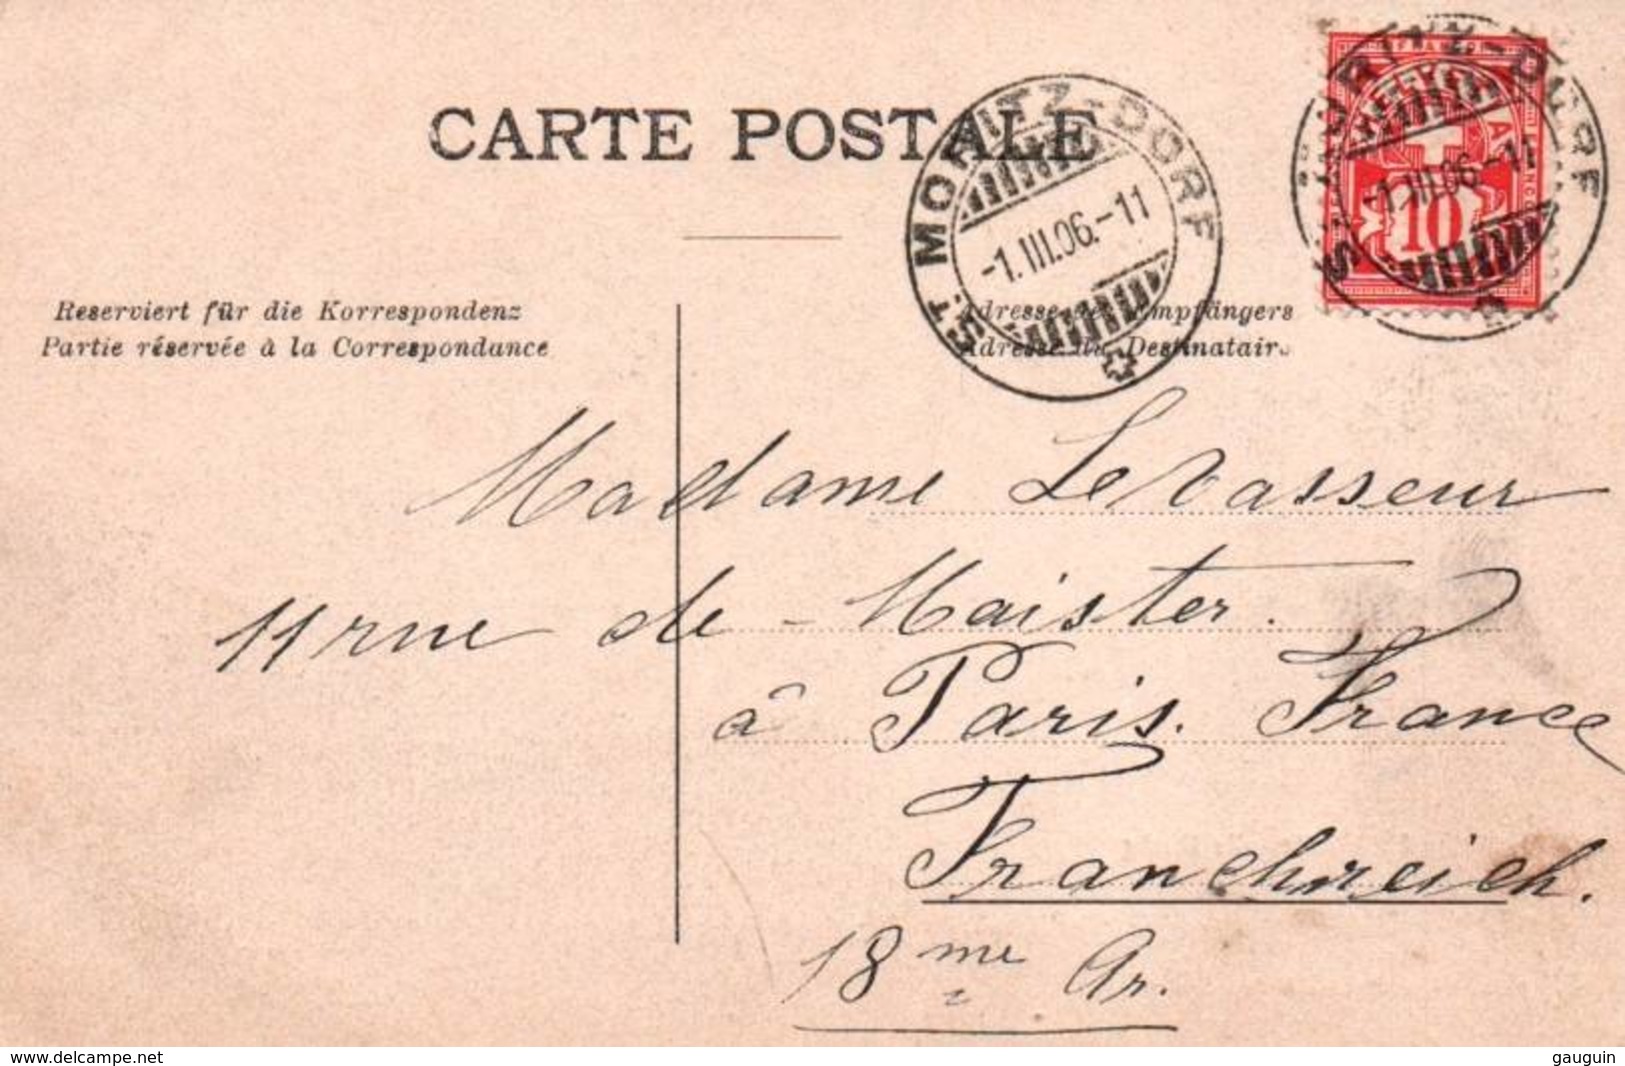 CARTE POSTALE
ST. MORITZ-DORF
-1.III.06.-11
ST. MORITZ-DORF
-1.III.06.-11
10
Reserviert für die Korrespondenz
Partie réservée à la Correspondance
Adresse des Empfängers
Adresse du Destinataire
Madame Levasseur
11 rue de Maister.
à Paris. France
Franchreich.
18me Ar.
www.delcampe.net
gauguin